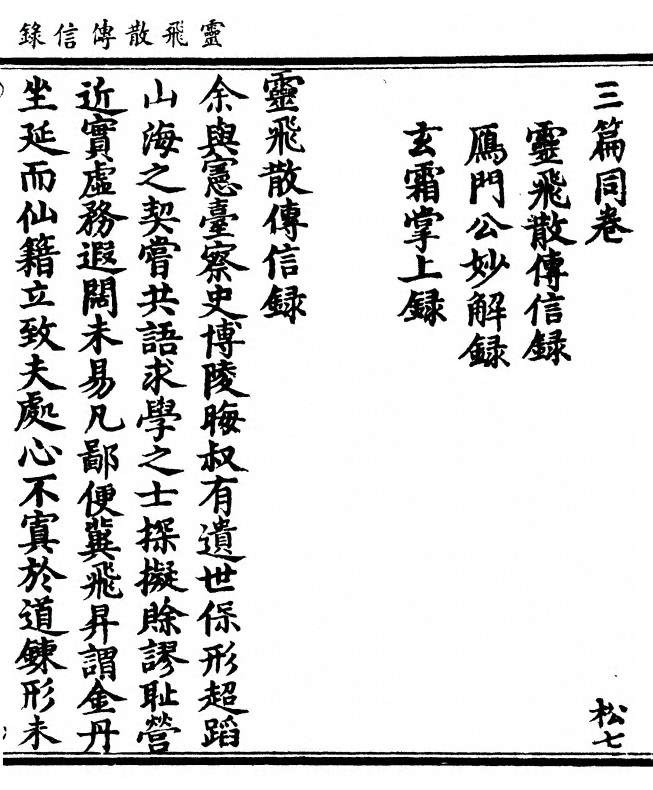 靈飛散傳信錄
三篇同卷
松七
靈飛散傳信録
鴈門公妙解録
玄霜掌上録
靈飛散傳信録
余與憲臺察史博陵晦叔有遺世保形超蹈
山海之契嘗共語求學之士探擬賒謬耻營
近實虛務遐闊未易凡鄙便冀飛昇謂金丹
坐延而仙籍立致夫處心不寘於道鍊形未